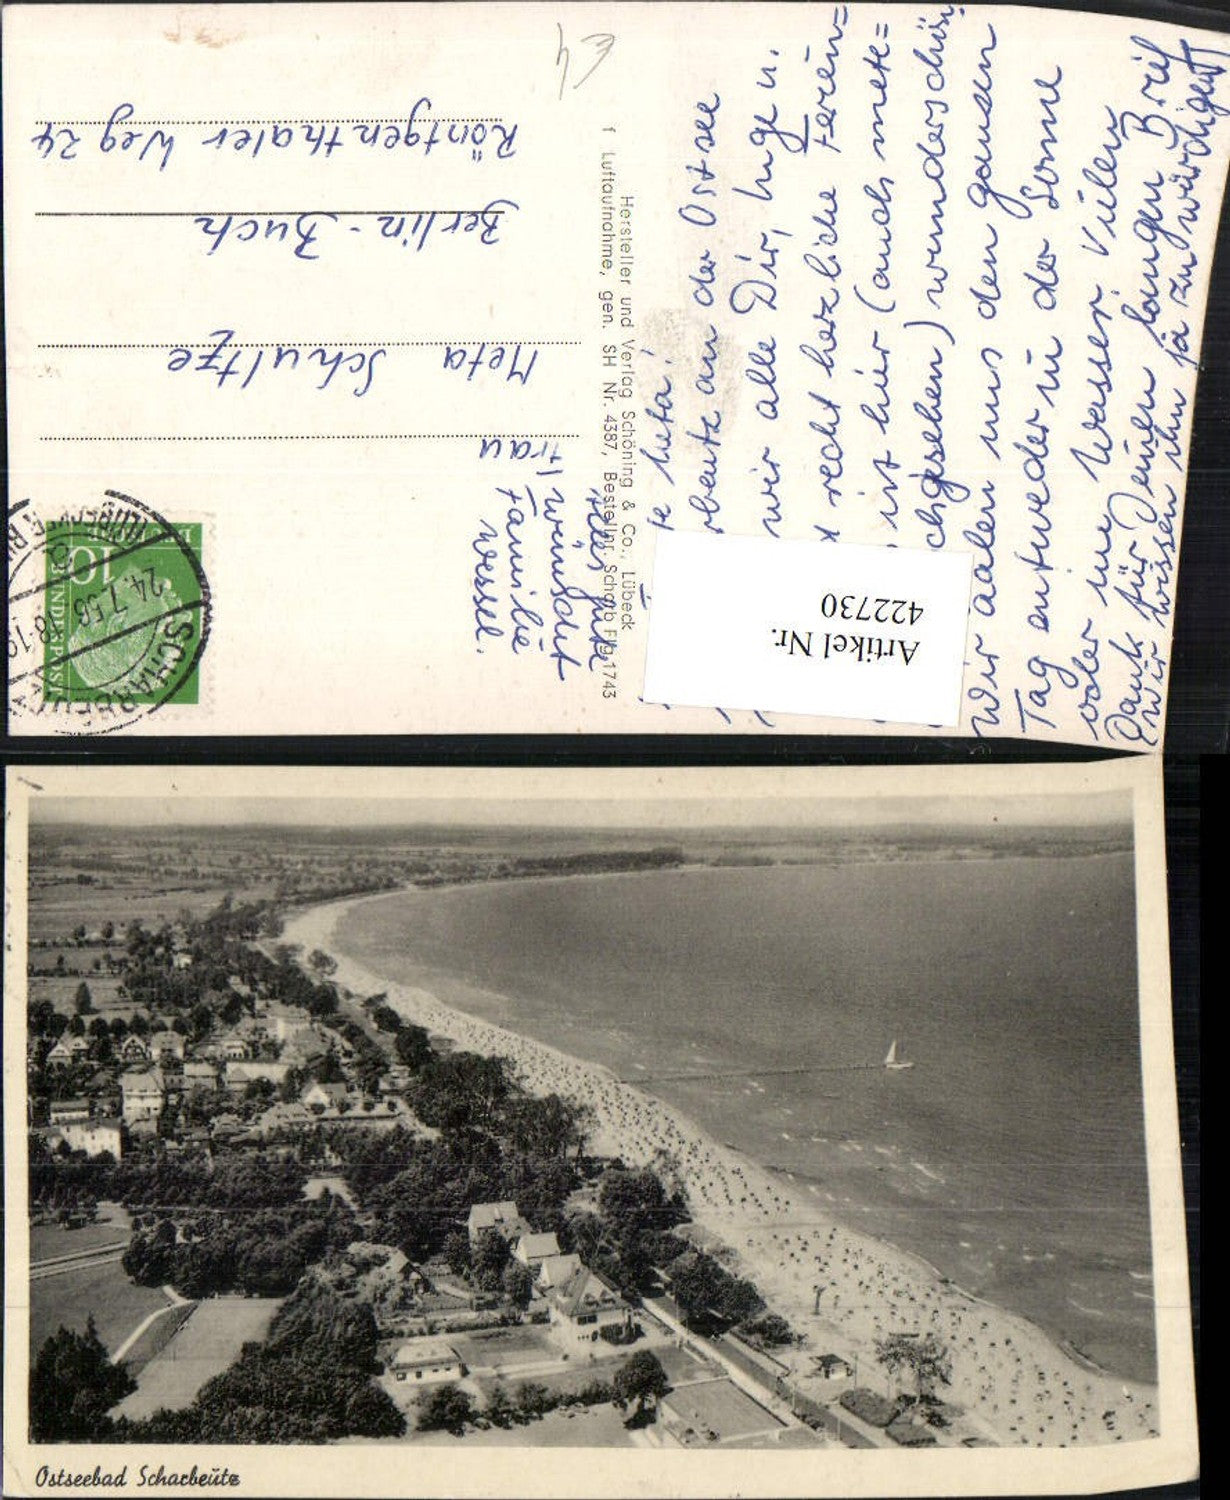 €4
te Meta!
rbeutz an der Ostsee
wir alle Dir, Inge u.
recht herzliche Ferien=
ist hier (auch mete=
chgesehen) wunderschön.
Wir aalen uns den ganzen
Tag entweder in der Sonne
oder im Wasser. Vielen
Dank für Deinen langen Brief
Wir wissen ihn ja zu würdigen!
Alles Gute
wünscht
Familie
Wessel.
Frau
Meta Schultze
Berlin-Buch
Röntgenthaler Weg 24
Hersteller und Verlag Schöning & Co., Lübeck
f Luftaufnahme, gen. SH Nr. 4387, Bestellnr. Scharb Flg. 1743
10
BUNDESPOST
SCHARBEUTZ
24.7.56 18-19
a
(LÜBECKER BU
Artikel Nr.
422730
Ostseebad Scharbeutz